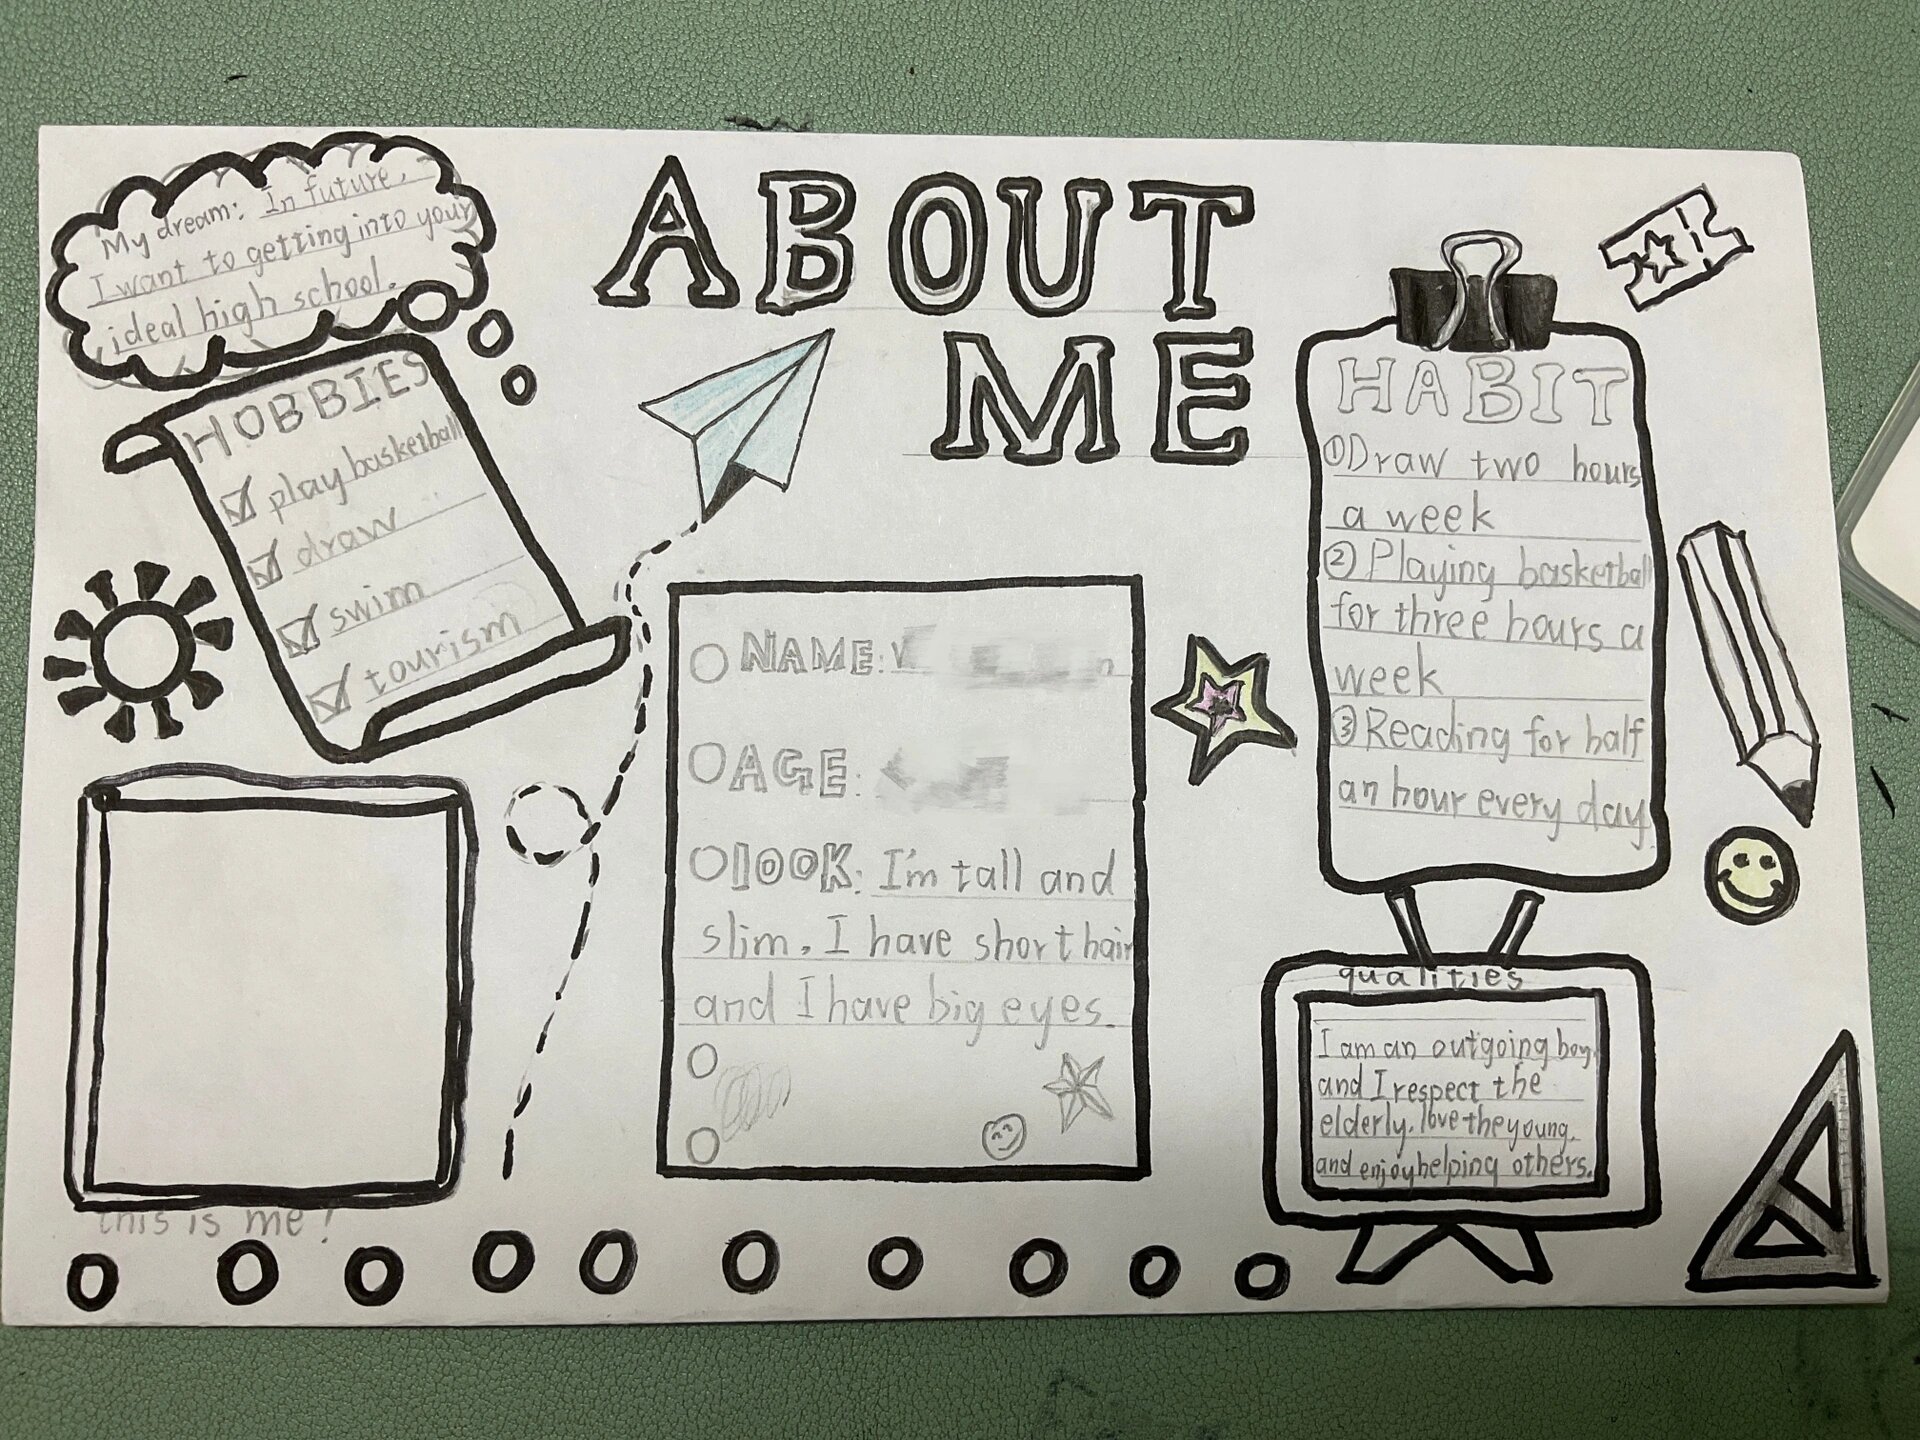 ABOUT
ME
My dream: In future,
I want to getting into your
ideal high school.
HOBBIES
play basketball
draw
swim
tourism
NAME:
AGE:
lOOK: I'm tall and
slim, I have short hair
and I have big eyes.
HABIT
①Draw two hours
a week
②Playing basketball
for three hours a
week
③Reading for half
an hour every day
qualities
I am an outgoing boy,
and I respect the
elderly, love the young,
and enjoy helping others.
this is me!